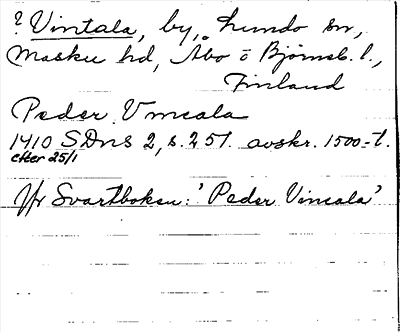 ? Vintala, by, Lundo sn,
Masku hd, Åbo o Björneb. l.,
Finland
Peder Vincala
1410 SDns 2, s. 251. avskr. 1500-t.
efter 25/1
Jfr Svartboken: 'Peder Vincala'